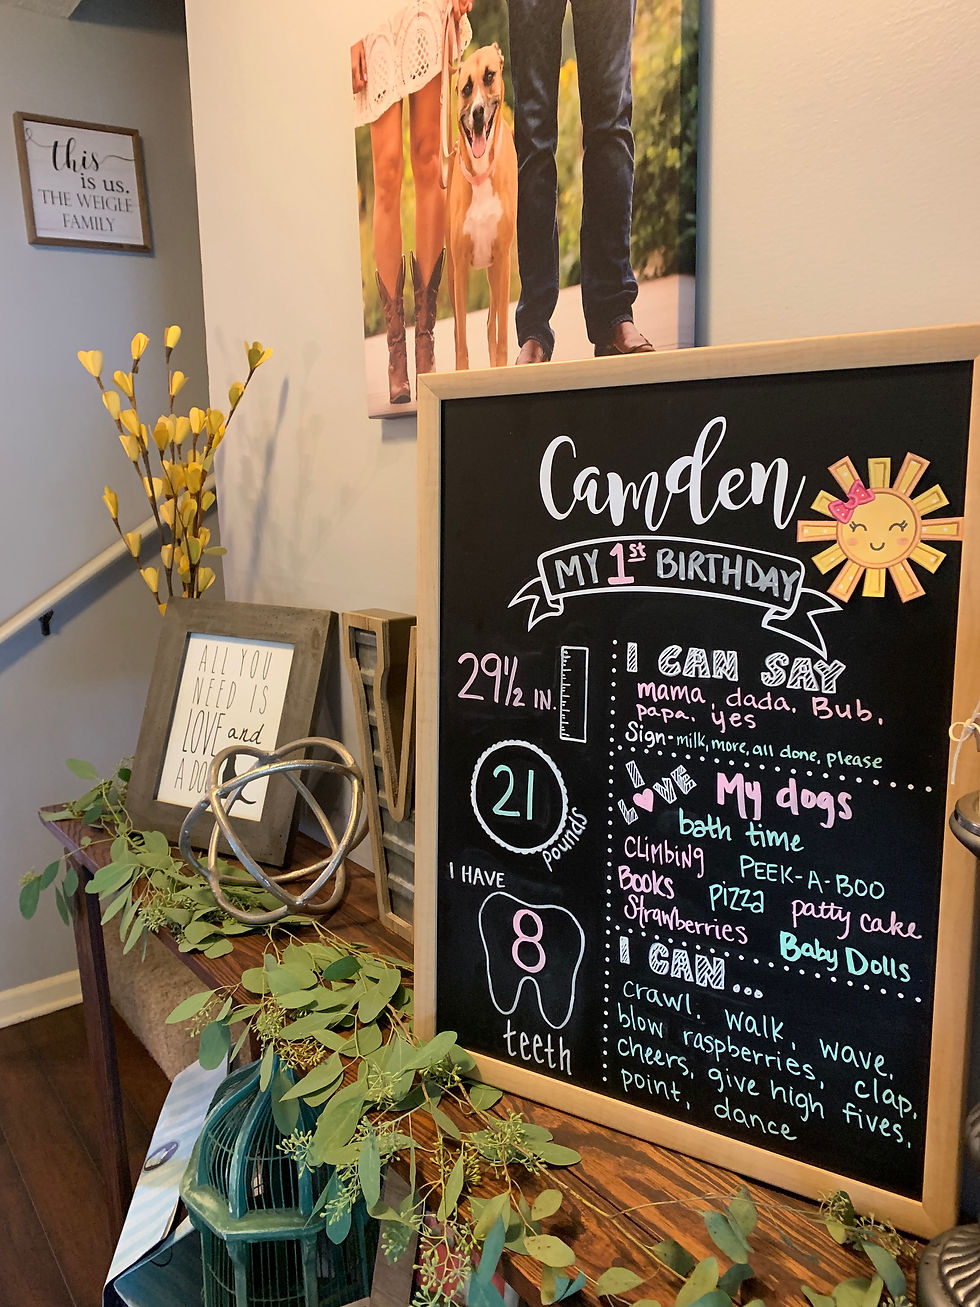 this
is us.
THE WEIGLE
FAMILY
ALL YOU
NEED IS
LOVE and
A DO
Camden
MY 1st BIRTHDAY
29 1/2 IN.
21
pounds
I HAVE
8
teeth
I CAN SAY
mama, dada. Bub.
papa. yes
Sign - milk, more, all done, please
LOVE My dogs
bath time
CLIMBING PEEK-A-BOO
BOOKS PIZZA patty cake
Strawberries Baby Dolls
I CAN...
crawl. walk. wave.
blow raspberries. clap.
cheers. give high fives.
point. dance